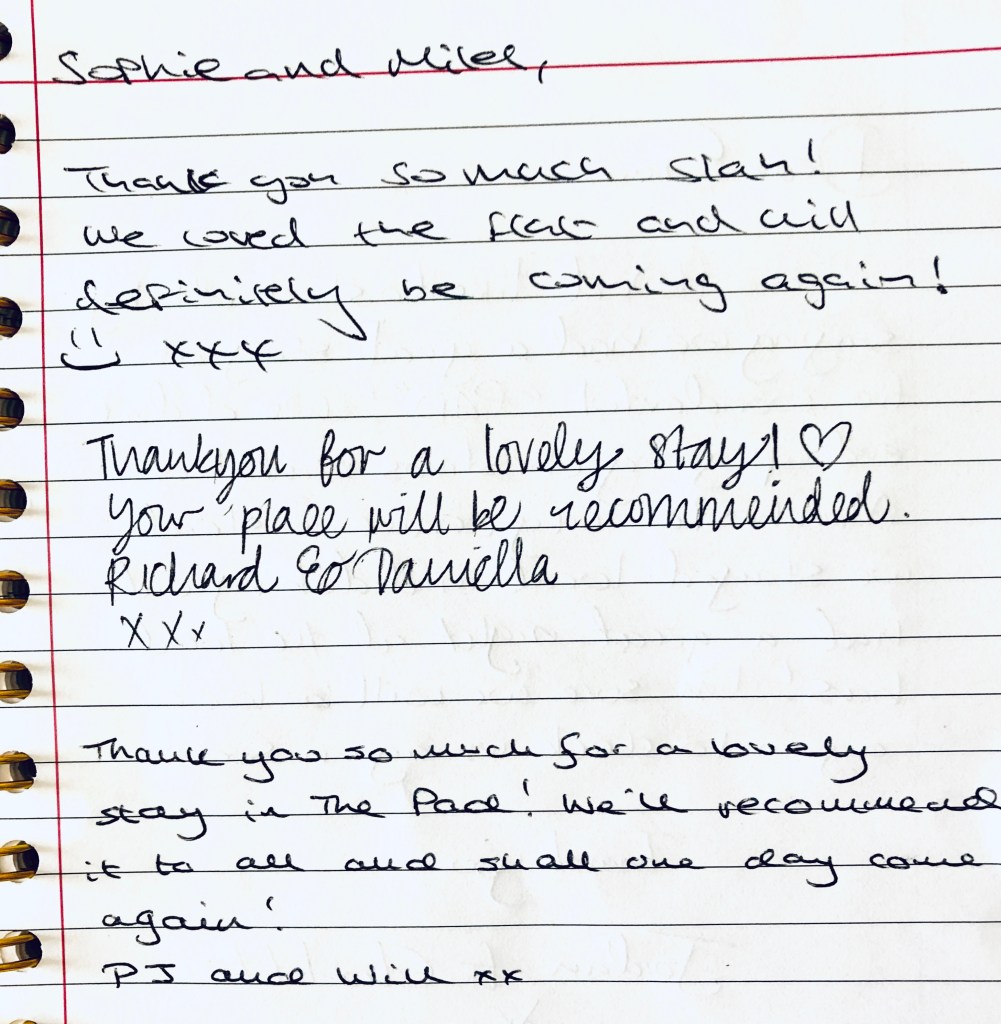 Sophie and Miles,
Thank you so much Sian!
We loved the flat and will
definitely be coming again!
xxx
Thankyou for a lovely stay! ♡
Your place will be recommended.
Richard & Daniella
xxx
Thank you so much for a lovely
stay in The Pad! We'll recommend
it to all and shall one day come
again!
PJ and Will xx